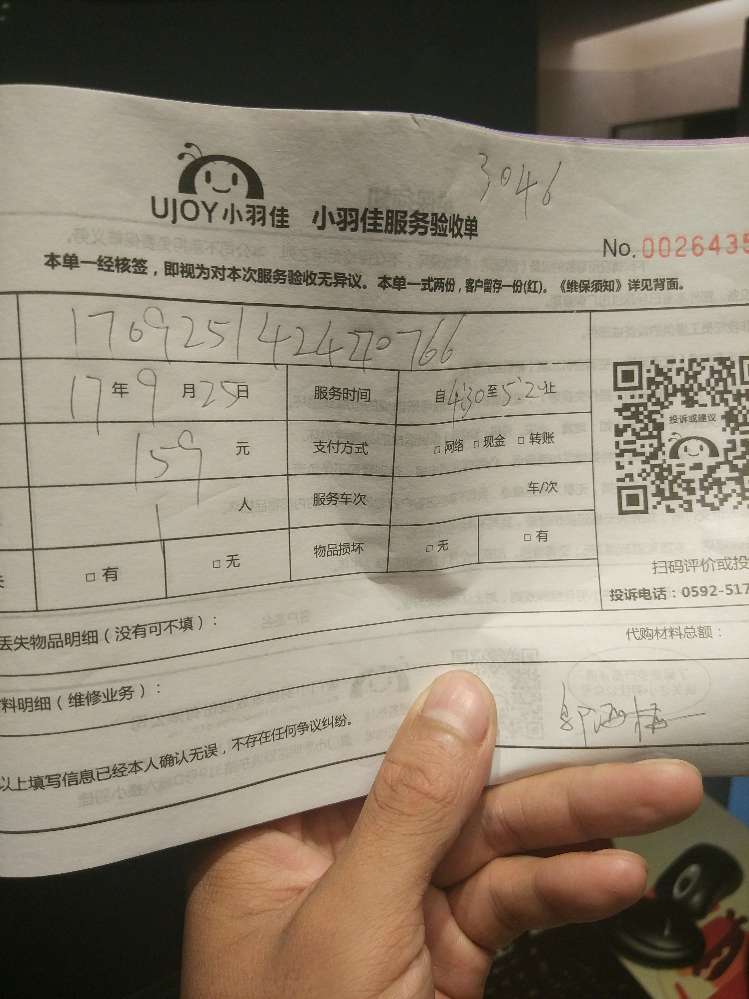 3046
UJOY小羽佳 小羽佳服务验收单
No. 0026435
本单一经核签，即视为对本次服务验收无异议。本单一式两份，客户留存一份(红)。《维保须知》详见背面。
17年9月25日 服务时间 自4:30至5:2止
159元 支付方式 □网络 □现金 □转账
投诉或建议
1人 服务车次 车/次
□有 □无 物品损坏 □无 □有
扫码评价或投
投诉电话：0592-517
丢失物品明细（没有可不填）：
代购材料总额：
料明细（维修业务）：
以上填写信息已经本人确认无误，不存在任何争议纠纷。